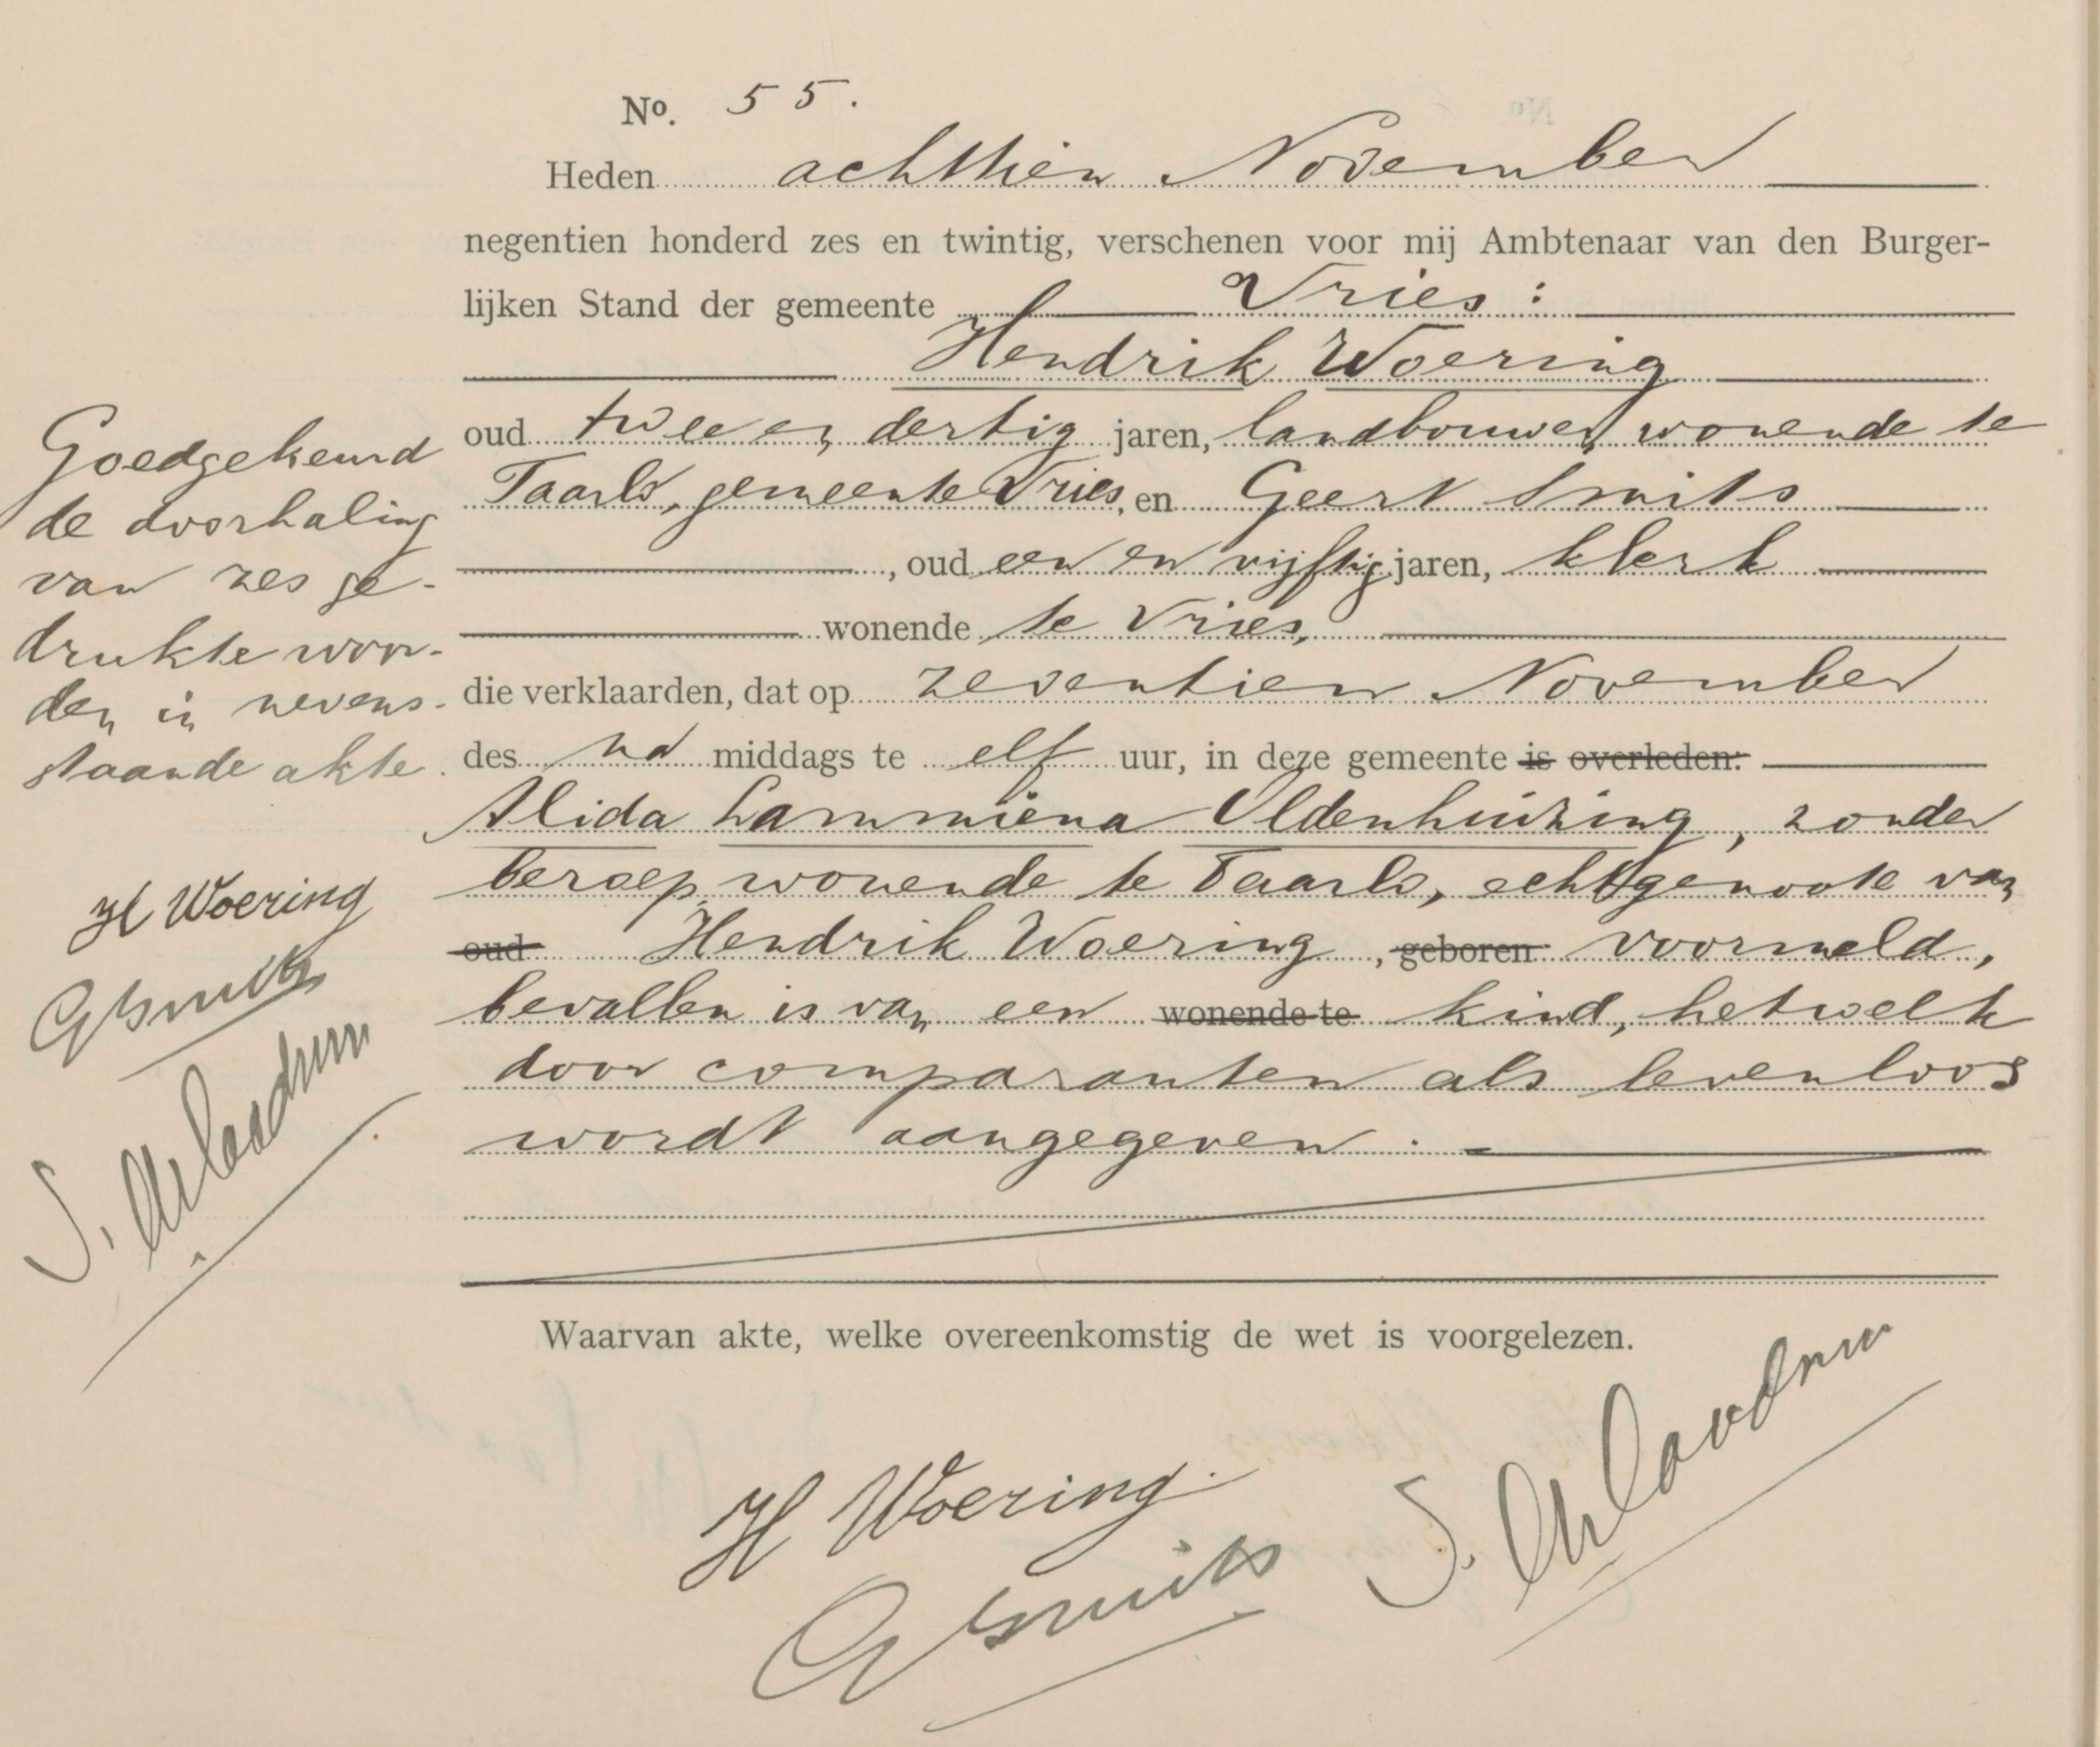 No. 55.
Heden achttien November
negentien honderd zes en twintig, verschenen voor mij Ambtenaar van den Burger-
lijken Stand der gemeente Vries:
Hendrik Woering
oud twee en dertig jaren, landbouwer, wonende te
Taarlo, gemeente Vries, en Geert Smits
, oud een en vijftig jaren, klerk
wonende te Vries,
die verklaarden, dat op zeventien November
des na middags te elf uur, in deze gemeente is overleden:
Alida Lammiena Oldenhuizing, zonder
beroep, wonende te Taarlo, echtgenoote van
oud Hendrik Woering, geboren voormeld,
bevallen is van een wonende te kind, hetwelk
door comparanten als levenloos
wordt aangegeven.
Waarvan akte, welke overeenkomstig de wet is voorgelezen.
H Woering
G Smits
Goedgekeurd
de doorhaling
van zes ge-
drukte woor-
den in nevens-
staande akte.
H Woering
G Smits